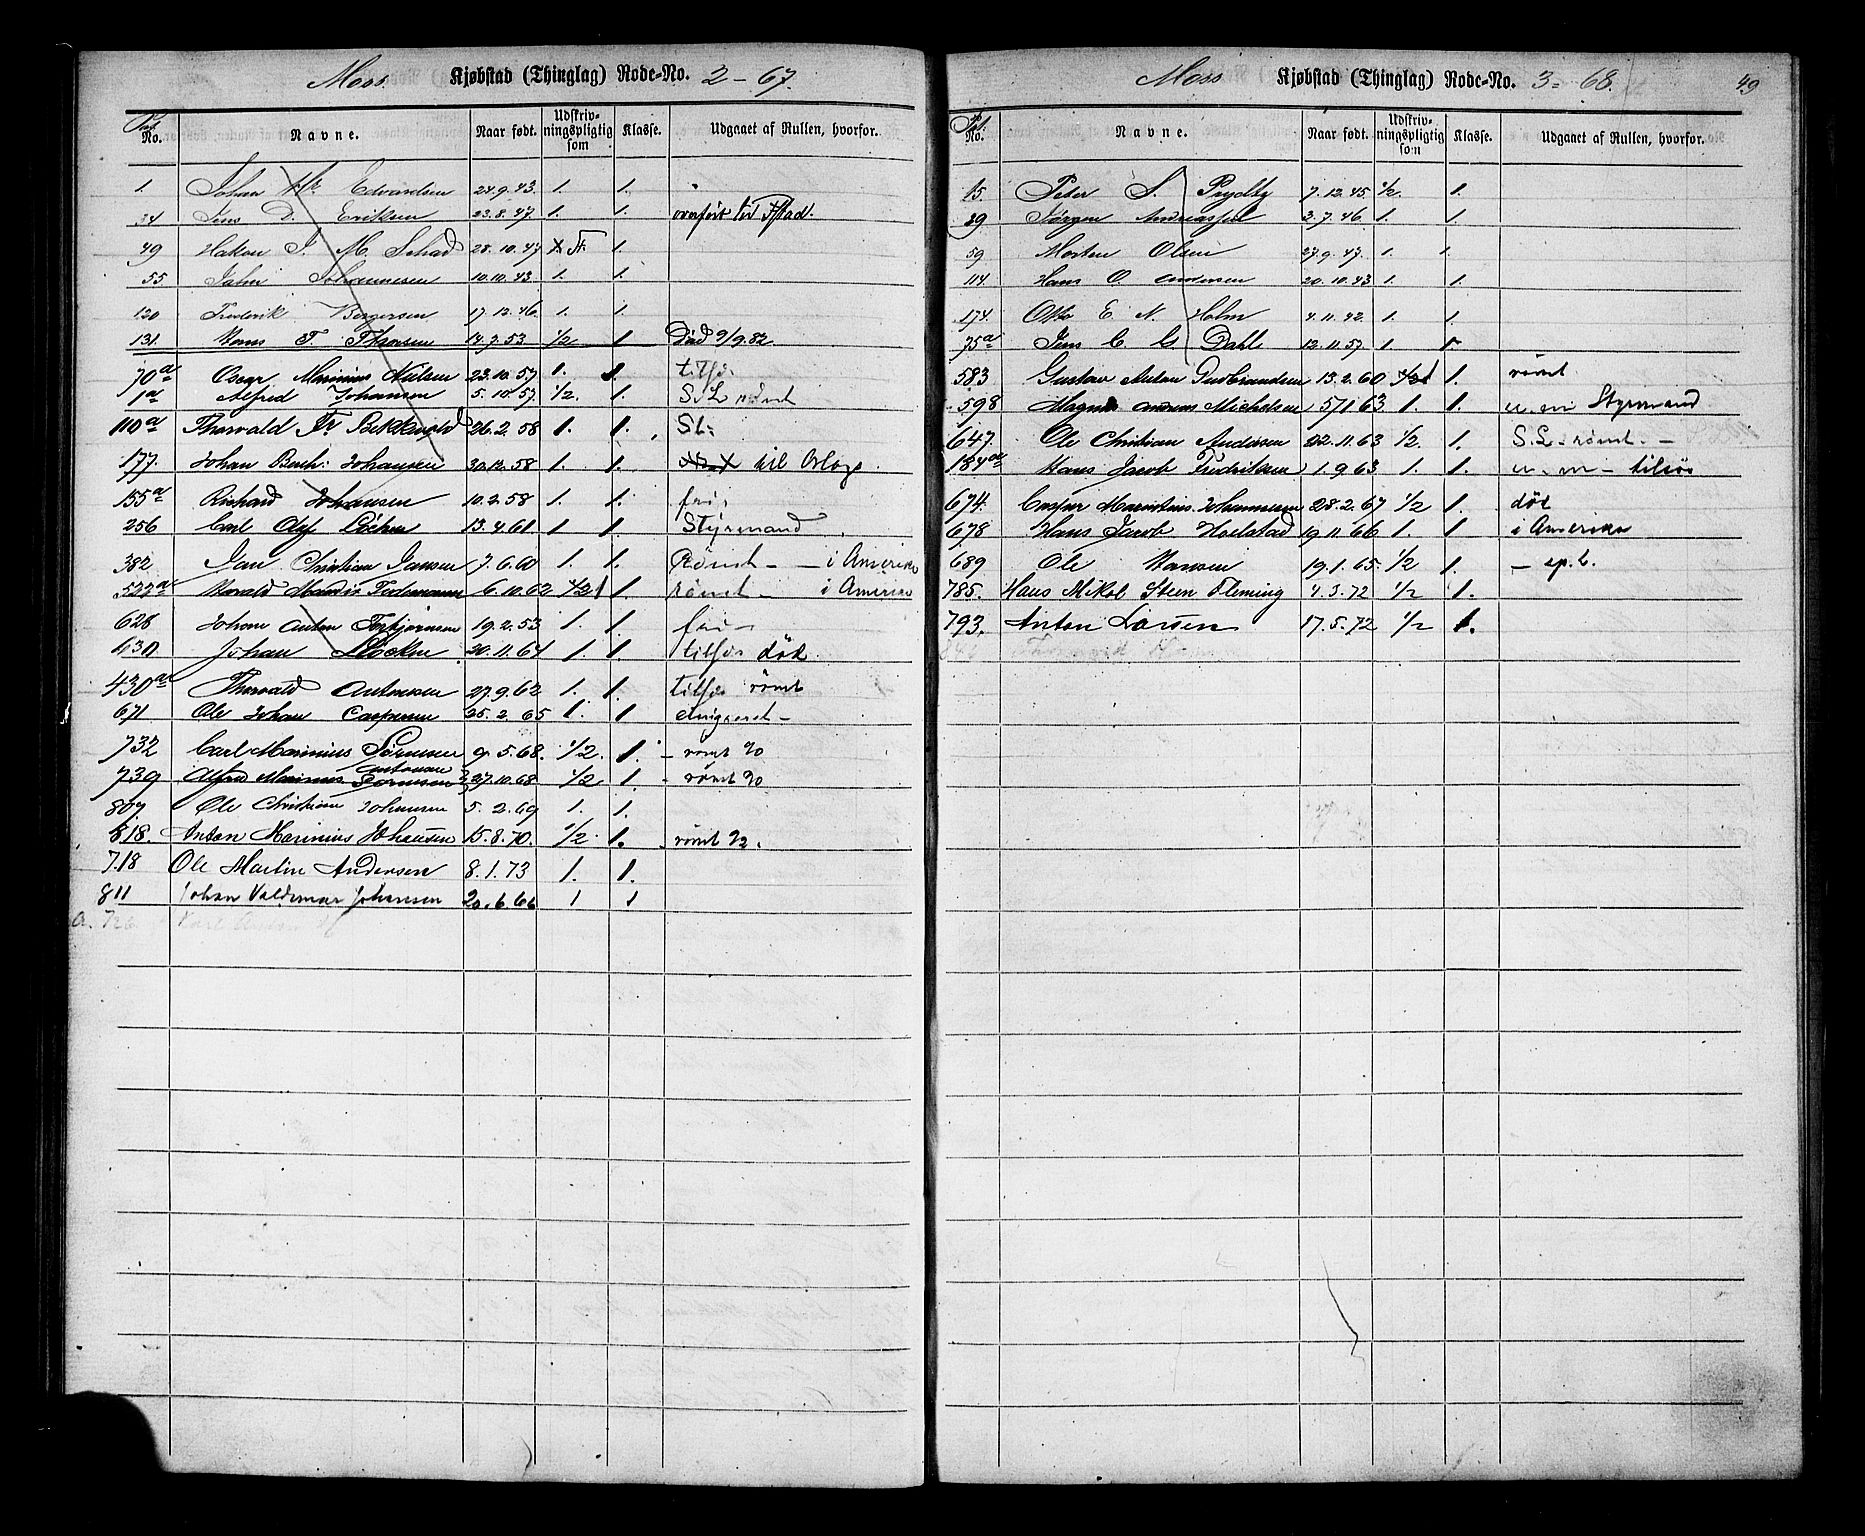 Moss Kjøbstad (Thinglag) Rode-No. 2 - 67.
No. Navne. Naar født. Udskriv-ningspligtig som Klasse. Udgaaet af Rullen, hvorfor.
1. Johan Edvardsen 24.9.43. 1. 1.
34 Jens D. Eriksen 23.8.47. 1. 1. overført til
49 Hakon J. M. Schad 28.10.47 1.
55 Johannesen 10.10.43. 1. 1.
120 Frederik Bergersen 17.12.46. 1. 1.
131. Hans F. Thorsen 14.7.53 1/2 1. Död 9/9.82
70a Oscar Marinius Nielsen 23.10.57 1. 1. tilfs.
1a Alfred Johansen 5.10.57. 1/2. 1. S.L rømt
110a Thorvald Fr. 26.2.58 1. 1. SL
177. Johan Bernh: Johansen 30.12.58 1. 1. til Orlogs
155a Richard Johansen 10.2.58 1. 1. fri
256 Carl Olaf Løcken 13.4.61 1. 1. Styrmand
382 Christian Jansen 7.6.60 1. 1. Rømt - - i Amerika
522a Harald 6.10.62 1 1. rømt - i Amerika
628 Johan Anton Torbjørnsen 19.2.53 1. 1. fri -
630 Johan Løcken 20.11.64 1. 1. tilfs död
430a Thorvald Antonsen 27.9.62 1. 1. tilfs rømt
671 Ole Johan Caspersen 25.2.65 1. 1
732 Carl Marinius Sørensen 9.5.68. 1/2. 1. - rømt 90
739 Alfred Marinius Antonsen Sørensen 27.10.68 1/2 1. - rømt 90
807. Ole Christian Johansen 5.2.69 1. 1.
818. Anton Marinius Johansen 15.8.70. 1/2. 1. rømt 92.
718 Ole Martin Andersen 8.1.73 1. 1.
811 Johan Valdemar Johansen 20.6.66 1 1
a. 726 Karl Anton
Moss Kjøbstad (Thinglag) Rode-No. 3 - 68. 49
No. Navne. Naar født. Udskriv-ningspligtig som Klasse. Udgaaet af Rullen, hvorfor.
15. Peter S. Prydtz 7.12.45 1/2. 1.
39 Jørgen 3.7.46. 1. 1.
59 Morten Olsen 27.9.47. 1. 1.
114 Hans O. Andersen 20.10.43 1. 1.
174. Otto E. N. Holm 4.11.42. 1. 1.
75a Jens C. G. Dahl 12.11.57. 1.
583 Gustav Anton Gudbrandsen 13.2.60 1 1. rømt
598 Magnus Andreas Michelsen 5/1 63 1. 1. Styrmand
647. Ole Christian Andersen 22.11.63 1/2. 1. S.L. rømt. -
184a Hans Jacob Fredriksen 1.9.63 1. 1. tilsøs
674. Casper Marinius Johannesen 28.2.67 1/2 1. död
678 Hans Jacob Hoelstad 19.11.66 1. 1. i Amerika
689 Ole Hansen 19.1.65. 1/2 1.
785. Hans Mikal Steen Fleming 4.3.72 1/2 1.
793. Anton Larsen 17.5.72 1/2 1.
Thorvald